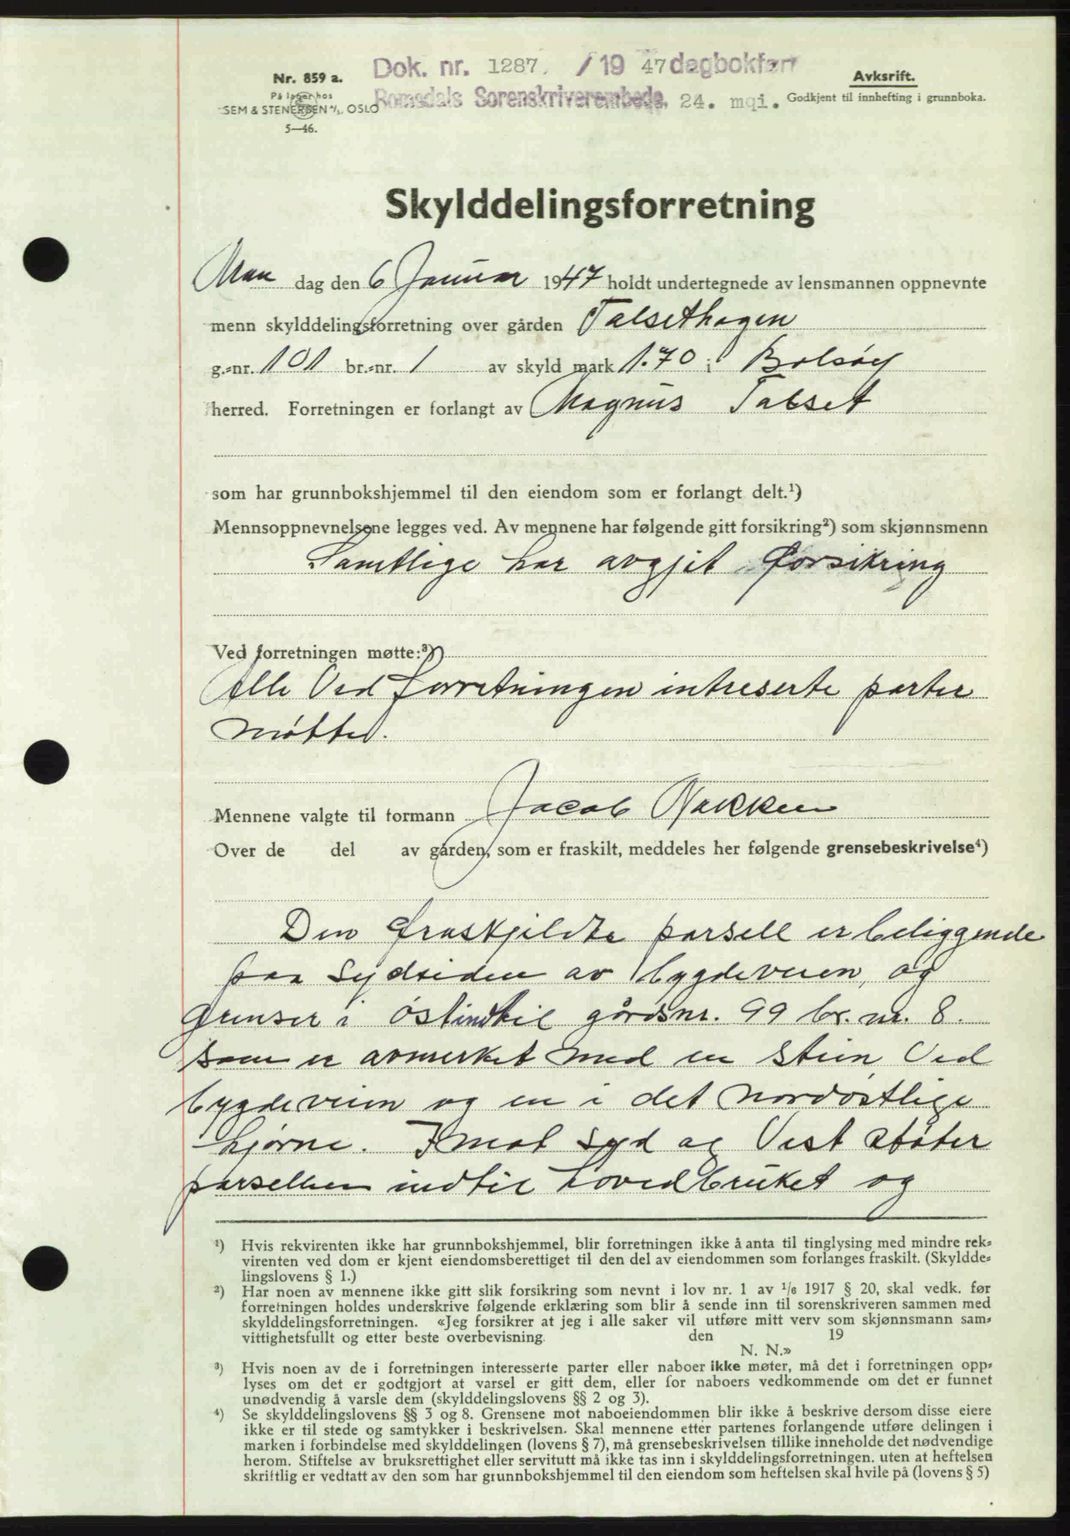 Nr. 859 a.
På lager hos
SEM & STENERSEN A/S, OSLO
5—46.
Dok. nr. 1287. /19 47 dagbokført
Romsdals Sorenskriverembede, 24. mai.
Avkskrift.
Godkjent til innhefting i grunnboka.
Skylddelingsforretning
Man dag den 6 Januar 1947 holdt undertegnede av lensmannen oppnevnte
menn skylddelingsforretning over gården Talsethagen
g.-nr. 101 br.-nr. 1 av skyld mark 1.70 i Bolsøy
herred. Forretningen er forlangt av Magnus Talset
som har grunnbokshjemmel til den eiendom som er forlangt delt.¹)
Mennsoppnevnelsene legges ved. Av mennene har følgende gitt forsikring²) som skjønnsmenn
Samtlige har avgjit forsikring
Ved forretningen møtte:³)
Alle Ved forretningen intreserte parter
møtte.
Mennene valgte til formann Jacob Nakken
Over de del av gården, som er fraskilt, meddeles her følgende grensebeskrivelse⁴)
Den fraskjildte parsell er beliggende
paa sydsiden av bygdeveien, og
grenser i øst indtil gårdsnr. 99 br. nr. 8.
som er avmerket med en stein Ved
bygdeveien og en i det nordøstlige
hjørne. Imot syd og Vest støter
parsellen indtil hovedbruket og
¹) Hvis rekvirenten ikke har grunnbokshjemmel, blir forretningen ikke å anta til tinglysing med mindre rek-
virenten ved dom er kjent eiendomsberettiget til den del av eiendommen som forlanges fraskilt. (Skyldde-
lingslovens § 1.)
²) Har noen av mennene ikke gitt slik forsikring som nevnt i lov nr. 1 av 1/6 1917 § 20, skal vedk. før
forretningen holdes underskrive følgende erklæring som blir å sende inn til sorenskriveren sammen med
skylddelingsforretningen. «Jeg forsikrer at jeg i alle saker vil utføre mitt verv som skjønnsmann sam-
vittighetsfullt og etter beste overbevisning. den 19
N. N.»
³) Hvis noen av de i forretningen interesserte parter eller naboer ikke møter, må det i forretningen opp-
lyses om det er godtgjort at varsel er gitt dem, eller for naboers vedkommende om det er funnet
unødvendig å varsle dem (skylddelingslovens §§ 2 og 3).
⁴) Se skylddelingslovens §§ 3 og 8. Grensene mot naboeiendommen blir ikke å beskrive dersom disse eiere
ikke er til stede og samtykker i beskrivelsen. Skal mennene etter partenes forlangende utføre delingen i
marken i forbindelse med skylddelingen (lovens § 7), må grensebeskrivelsen tillike inneholde det nødvendige
herom. Stiftelse av bruksrettighet eller servitutt må ikke tas inn i skylddelingsforretningen. uten at heftelsen
skriftlig er vedtatt av den som har grunnbokshjemmel til den eiendom som heftelsen skal hvile på (lovens § 5)